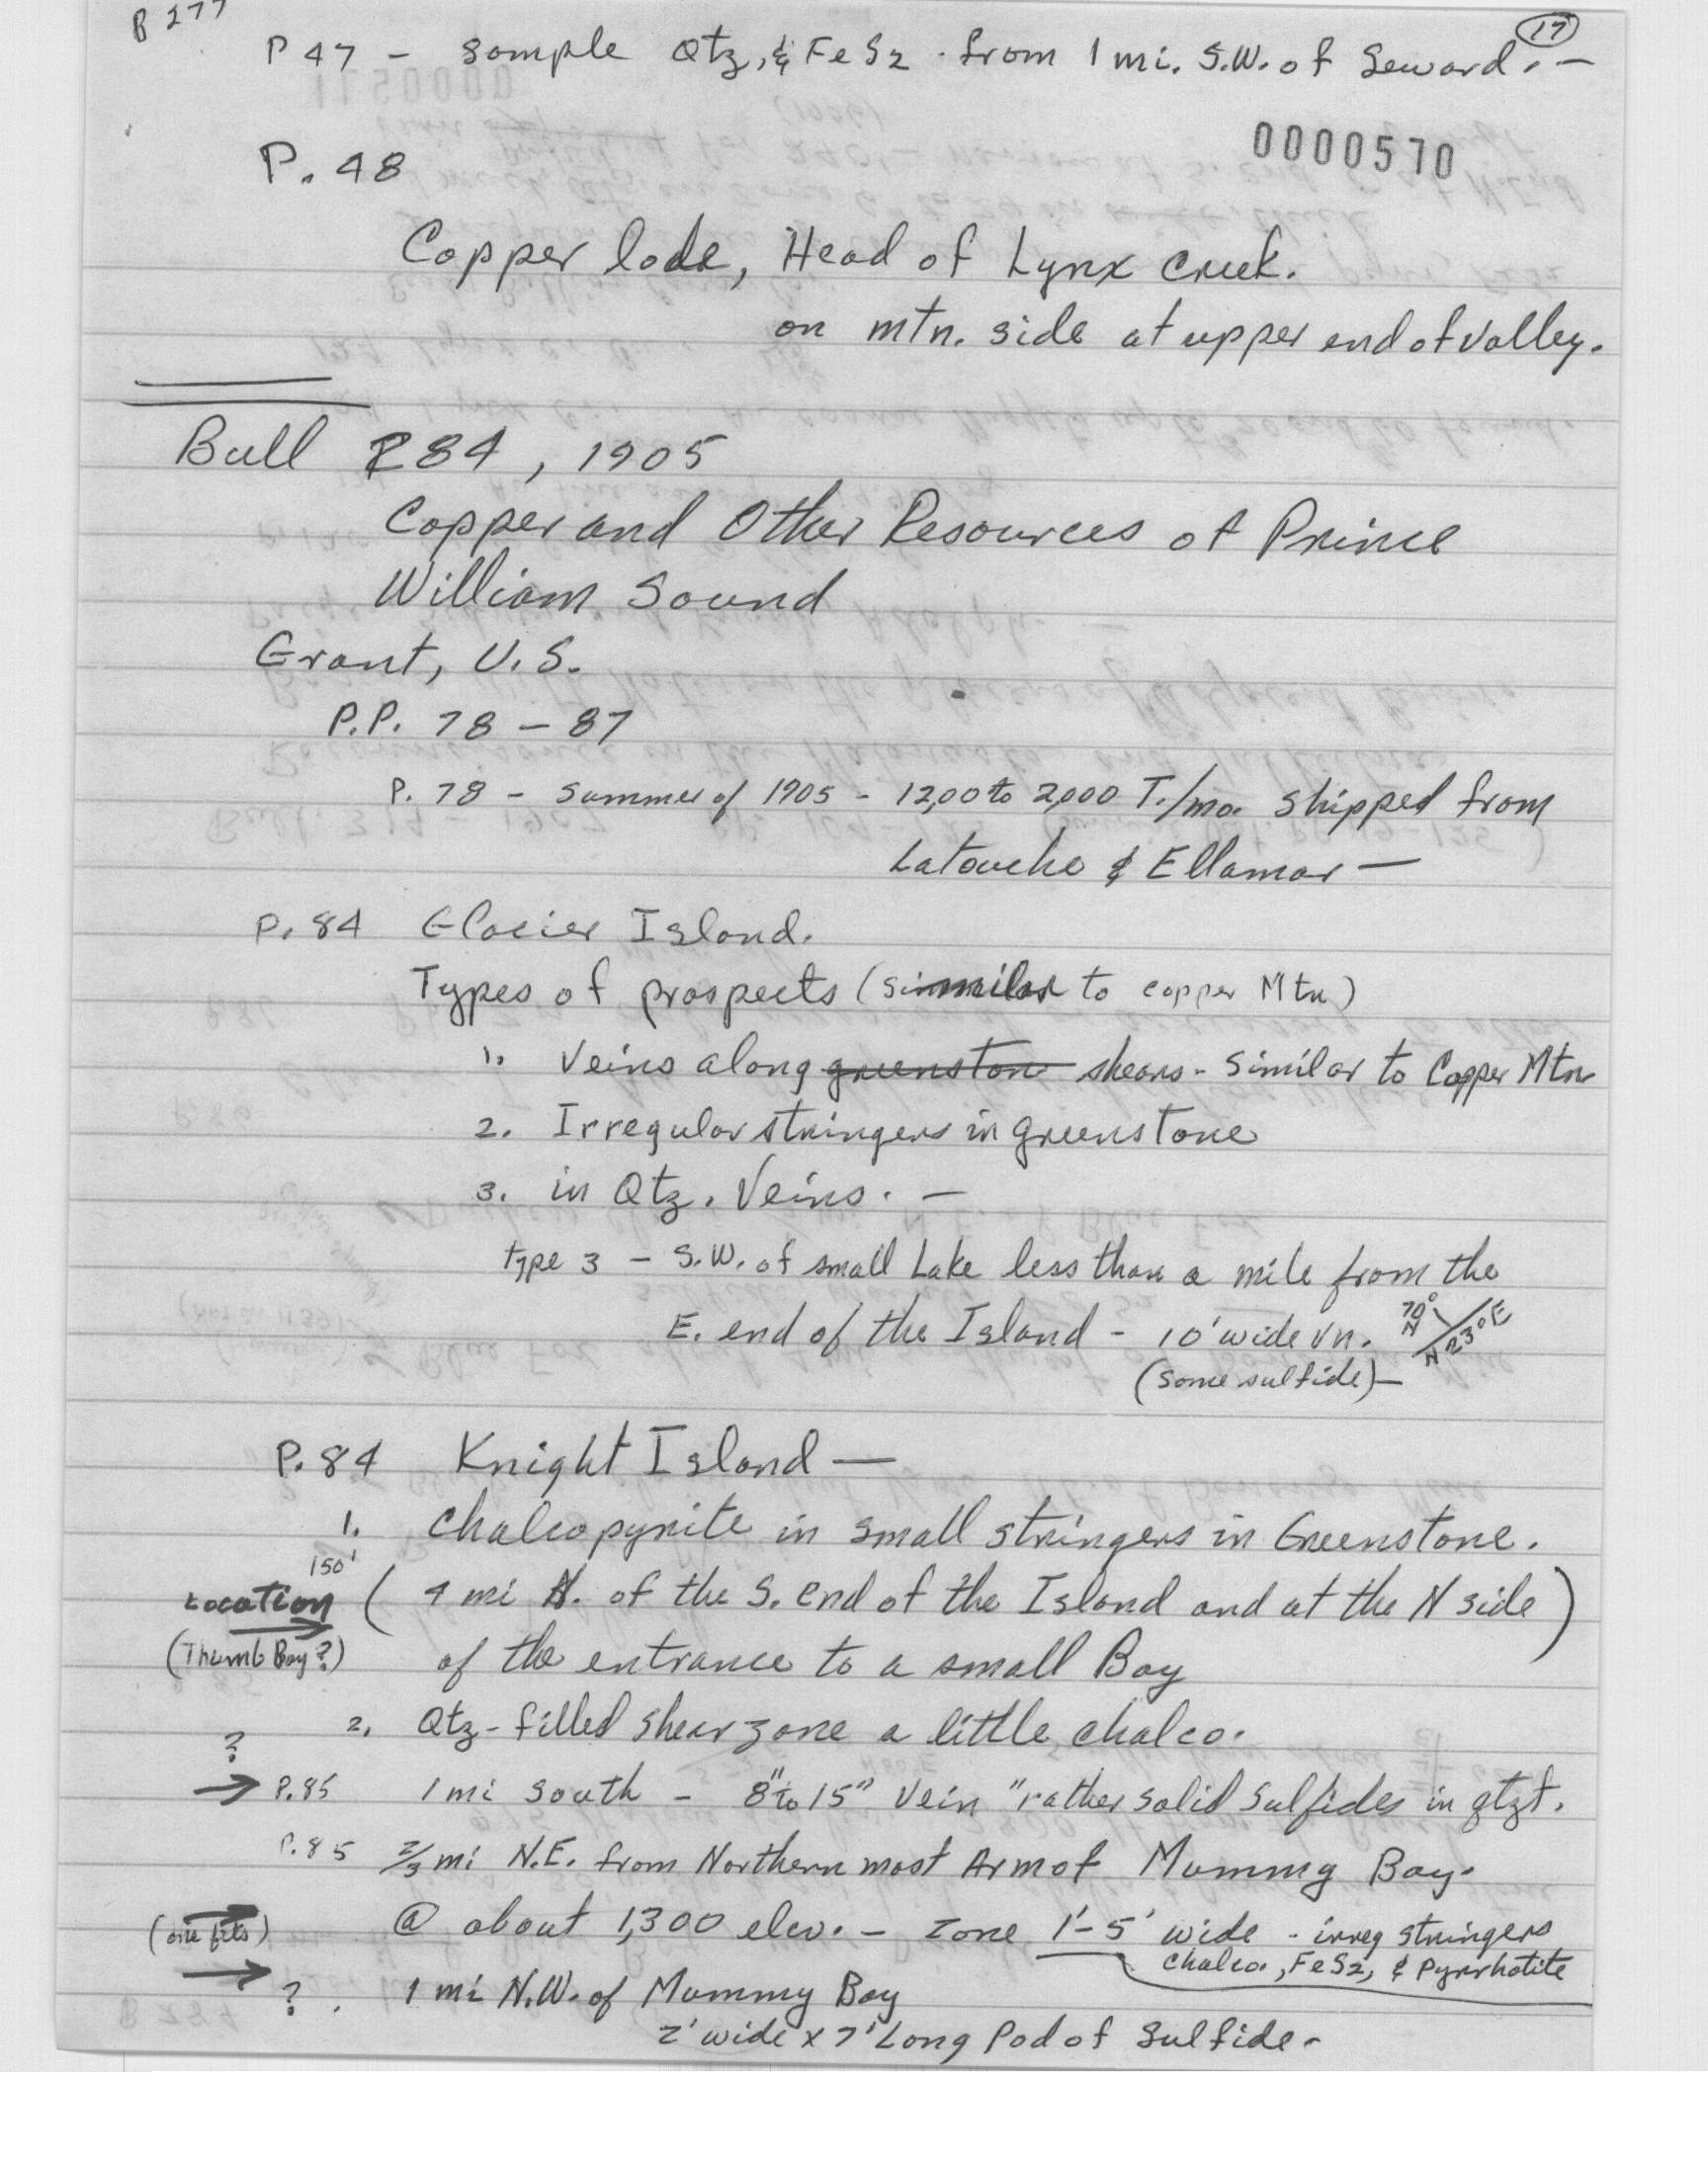 B 277
17
P 47 - Sample Qtz, & FeS2 - from 1 mi. S.W. of Seward. -
0000570
P. 48
Copper lode, Head of Lynx Creek.
on mtn. side at upper end of valley.
Bull 284, 1905
Copper and Other Resources of Prince
William Sound
Grant, U.S.
P.P. 78 - 87
P. 78 - Summer of 1905 - 12,00 to 2,000 T./mo. Shipped from
Latouche & Ellamar -
P. 84 Glacier Island.
Types of prospects (similar to copper Mtn)
1. Veins along greenston shears - Similar to Copper Mtn
2. Irregular stringers in greenstone
3. in Qtz. Veins. -
type 3 - S.W. of small Lake less than a mile from the
E. end of the Island - 10' wide vn. 70° N N 23° E
(some sulfide) -
P. 84 Knight Island -
1. Chalcopyrite in small stringers in Greenstone.
150'
Location ( 4 mi N. of the S. end of the Island and at the N side )
(Thumb Bay?) of the entrance to a small Bay
2. Qtz - filled Shear zone a little chalco.
?
→ P. 85 1 mi South - 8" to 15" Vein "rather solid sulfides in qtzt.
P. 85 2/3 mi N.E. from Northern most Arm of Mummy Bay.
(one fits) @ about 1,300 elev. - Zone 1'-5' wide - irreg stringers
chalco, FeS2, & Pyrrhotite
→ ? 1 mi N.W. of Mummy Bay
2' wide x 7' Long Pod of Sulfide -